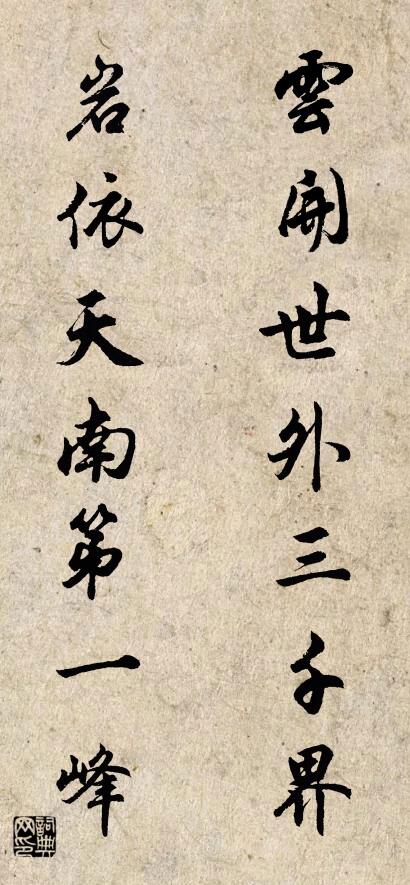 雲開世外三千界
岩依天南第一峰
詞典网印